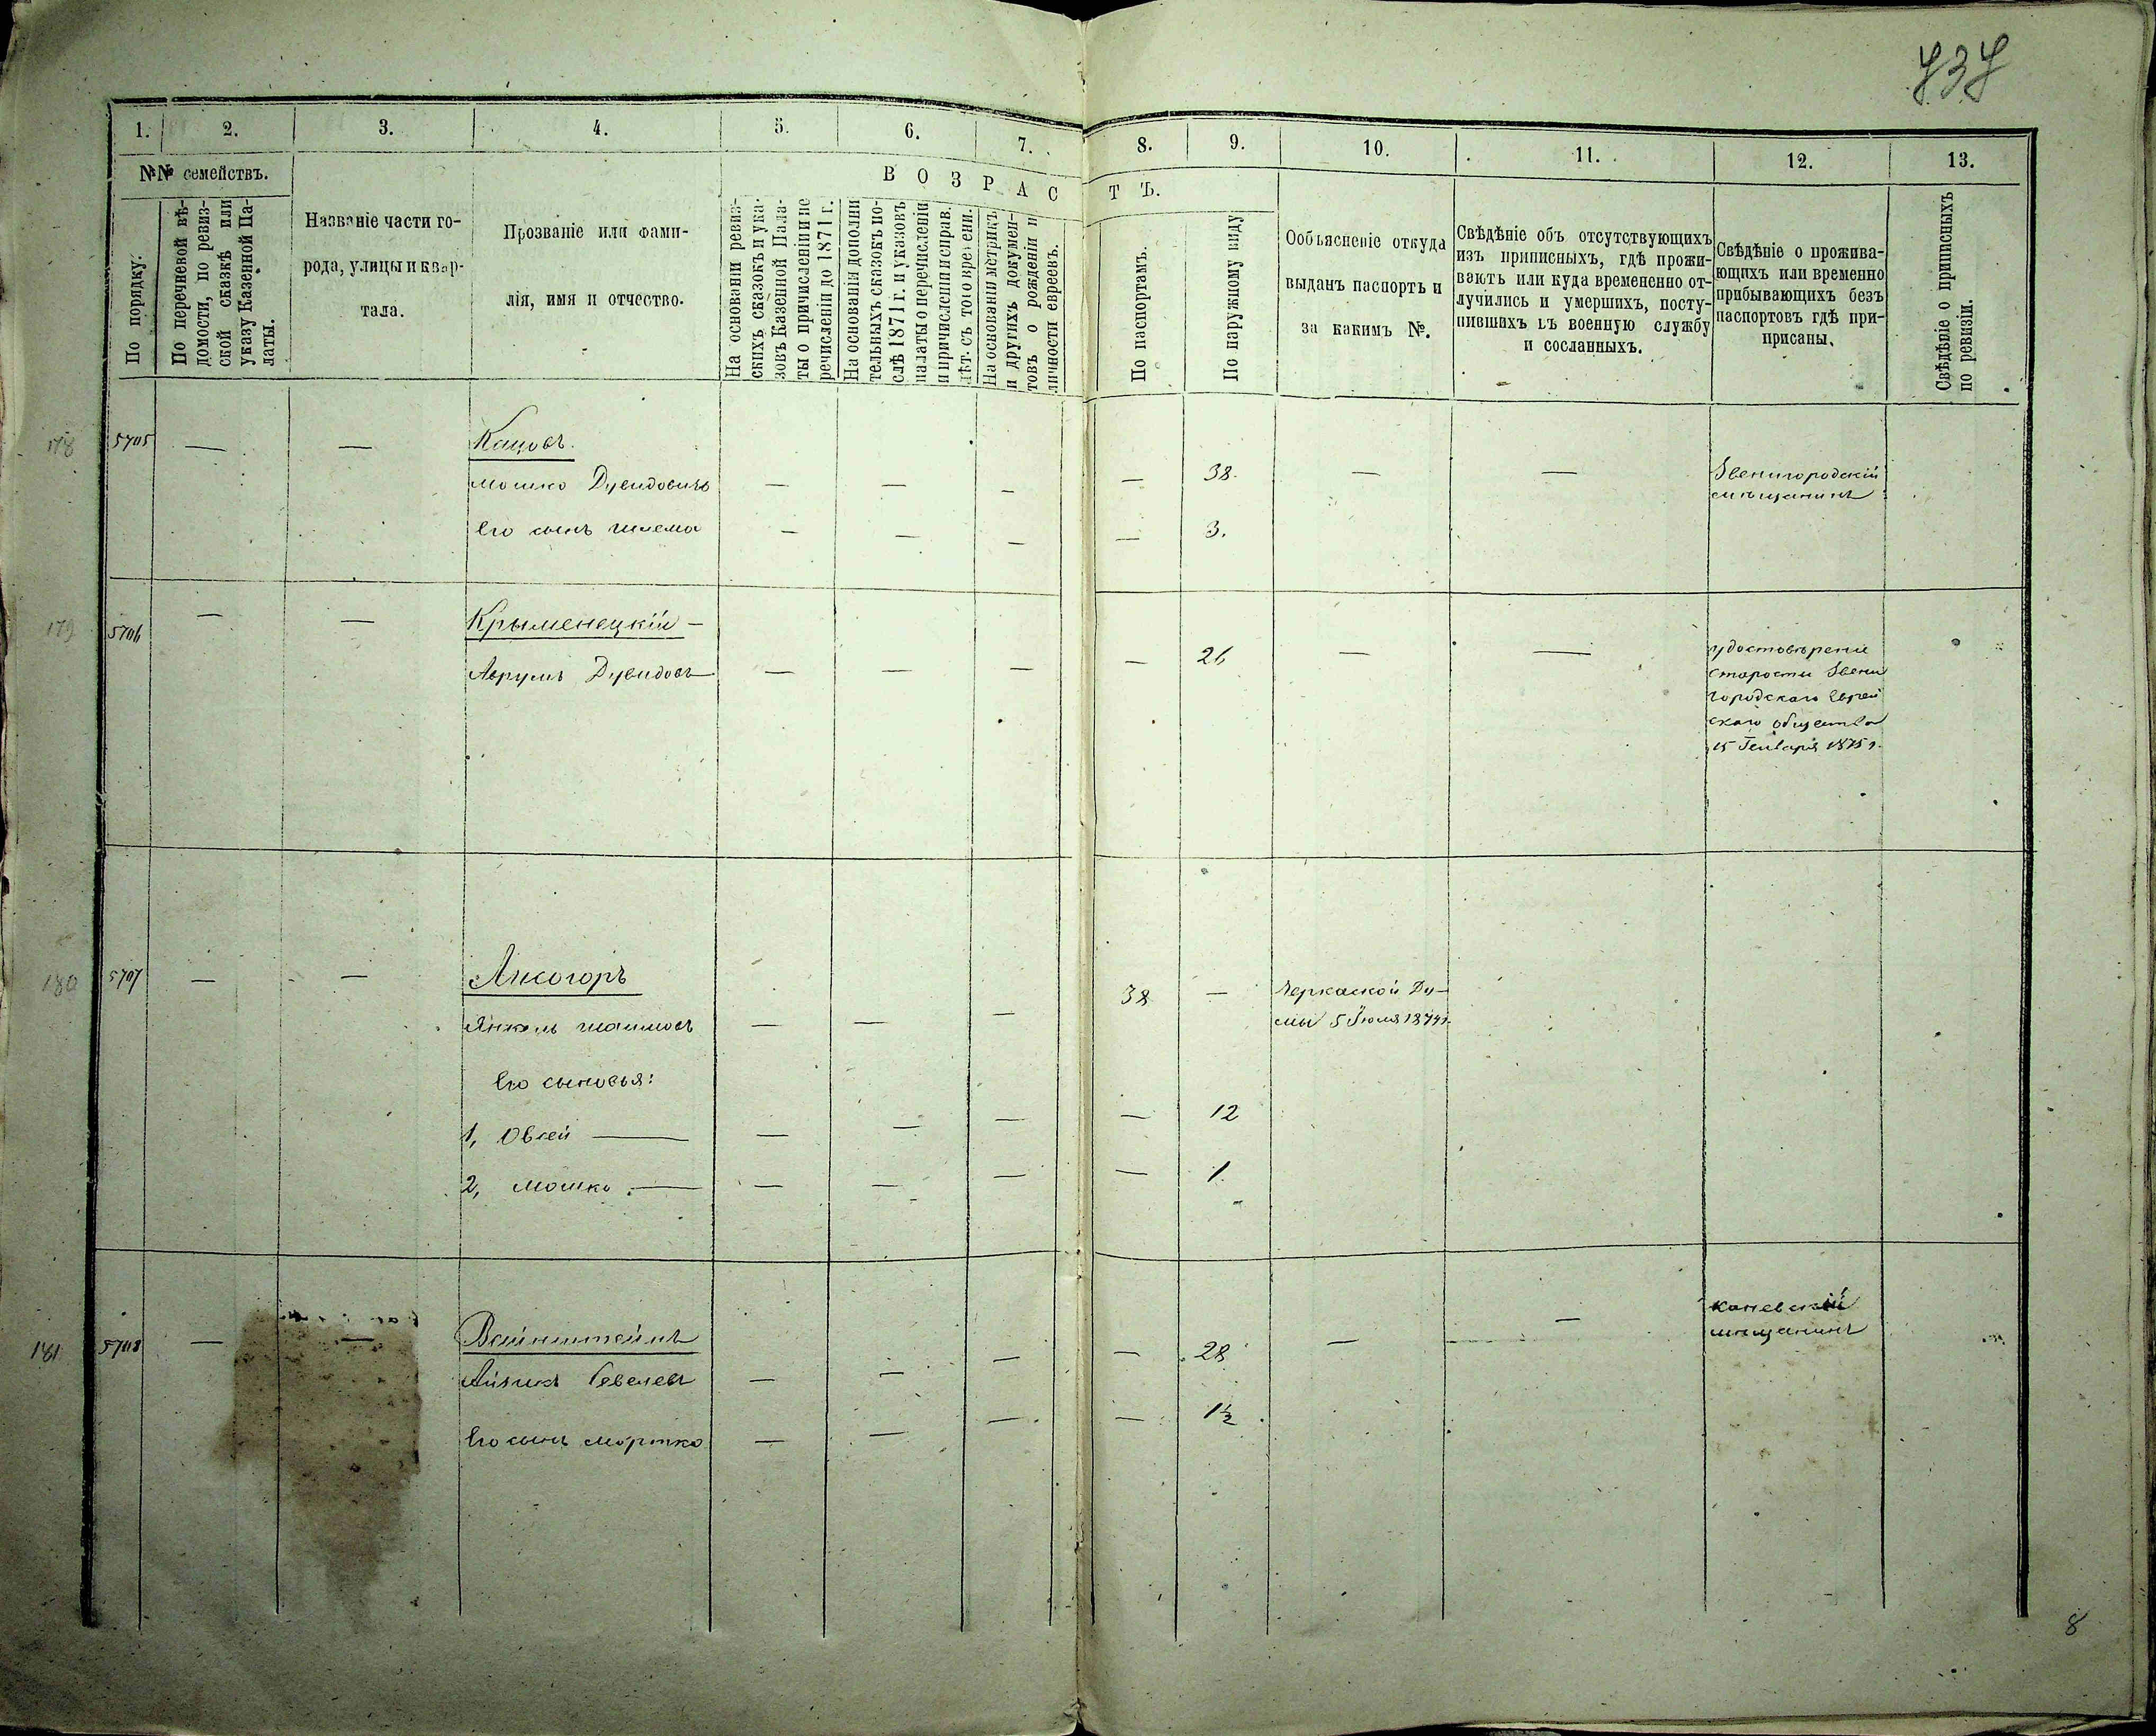 737
1.
2.
3.
4.
5.
6.
7.
8.
9.
10.
11.
12.
13.
№№ семействъ.
По порядку.
По перечневой вѣ-
домости, по ревиз-
ской сказкѣ или
указу Казенной Па-
латы.
Названіе части го-
рода, улицы и квар-
тала.
Прозваніе или фами-
лія, имя и отчество.
ВОЗРАСТЪ.
На основаніи ревиз-
скихъ сказокъ и ука-
зовъ Казенной Пала-
ты о причисленіи и пе
речисленіи до 1871 г.
На основаніи дополни
тельныхъ сказокъ по-
слѣ 1871 г. и указовъ
палаты о перечисленіи
и причисленіи исправ.
лѣт. съ того времени.
На основаніи метрикъ
и другихъ докумен-
товъ о рожденіи и
личности евреевъ.
По паспортамъ.
По наружному виду
Ообъясненіе откуда
выданъ паспортъ и
за какимъ №.
Свѣдѣніе объ отсутствующихъ
изъ приписныхъ, гдѣ прожи-
ваютъ или куда времененно от-
лучились и умершихъ, посту-
пившихъ въ военную службу
и сосланныхъ.
Свѣдѣніе о прожива-
ющихъ или временно
прибывающихъ безъ
паспортовъ гдѣ при-
писаны.
Свѣдѣніе о приписныхъ
по ревизіи.
178 5705 — — Кацовъ.
Мошко Дувидовичъ — — — — 38. — — Звенигородскій
мѣщанинъ
Его сынъ Шлема — — — — 3.
179 5706 — — Крыменецкій —
Аврумъ Дувидовъ — — — — 26 — — удостовѣреніе
старосты Звени
городскаго Еврей
скаго общества
15 Генваря 1875 г.
180 5707 — — Лисогоръ
Янкель Шаимовъ — — — 38 — Черкаской Ду-
мы 5 Іюля 1874 г.
Его сыновья:
1, Овсей — — — — — 12
2, Мошко. — — — — — 1.
181 5708 — — Вайнштейнъ
Айзикъ Гевелевъ — — — — 28 — — Каневскій
мѣщанинъ
Его сынъ Мортко — — — — 1½
8